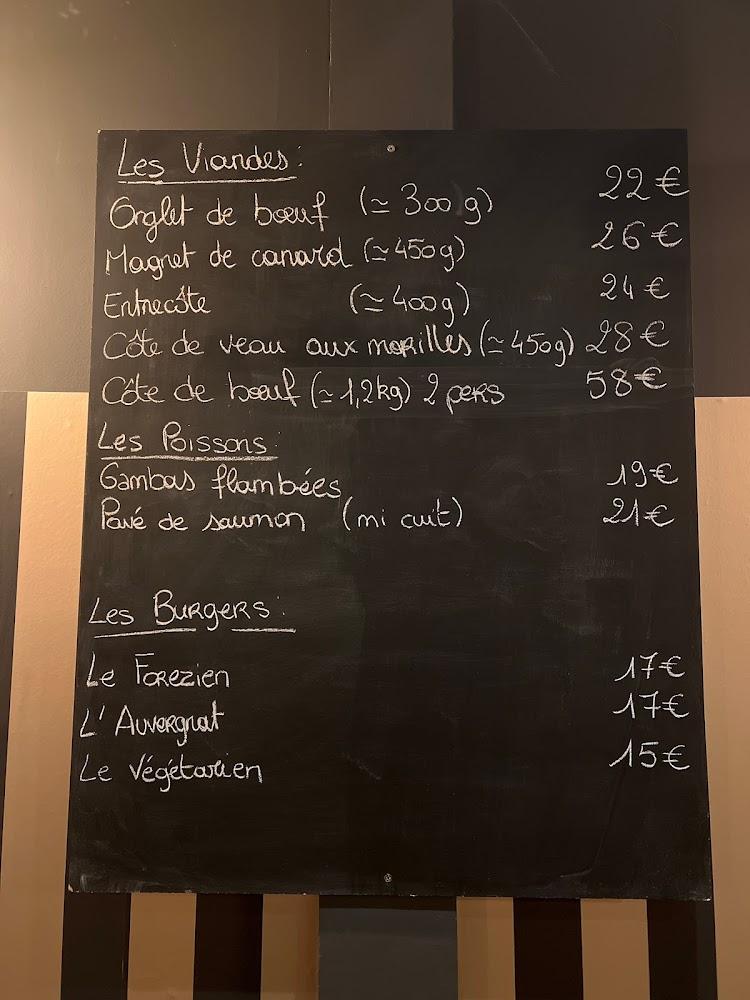 Les Viandes:
Onglet de bœuf (≃ 300g) 22€
Magret de canard (≃450g) 26€
Entrecôte (≃400g) 24€
Côte de veau aux morilles (≃450g) 28€
Côte de bœuf (≃1,2kg) 2 pers 58€
Les Poissons:
Gambas flambées 19€
Pavé de saumon (mi cuit) 21€
Les Burgers:
Le Forezien 17€
L'Auvergnat 17€
Le Végétarien 15€